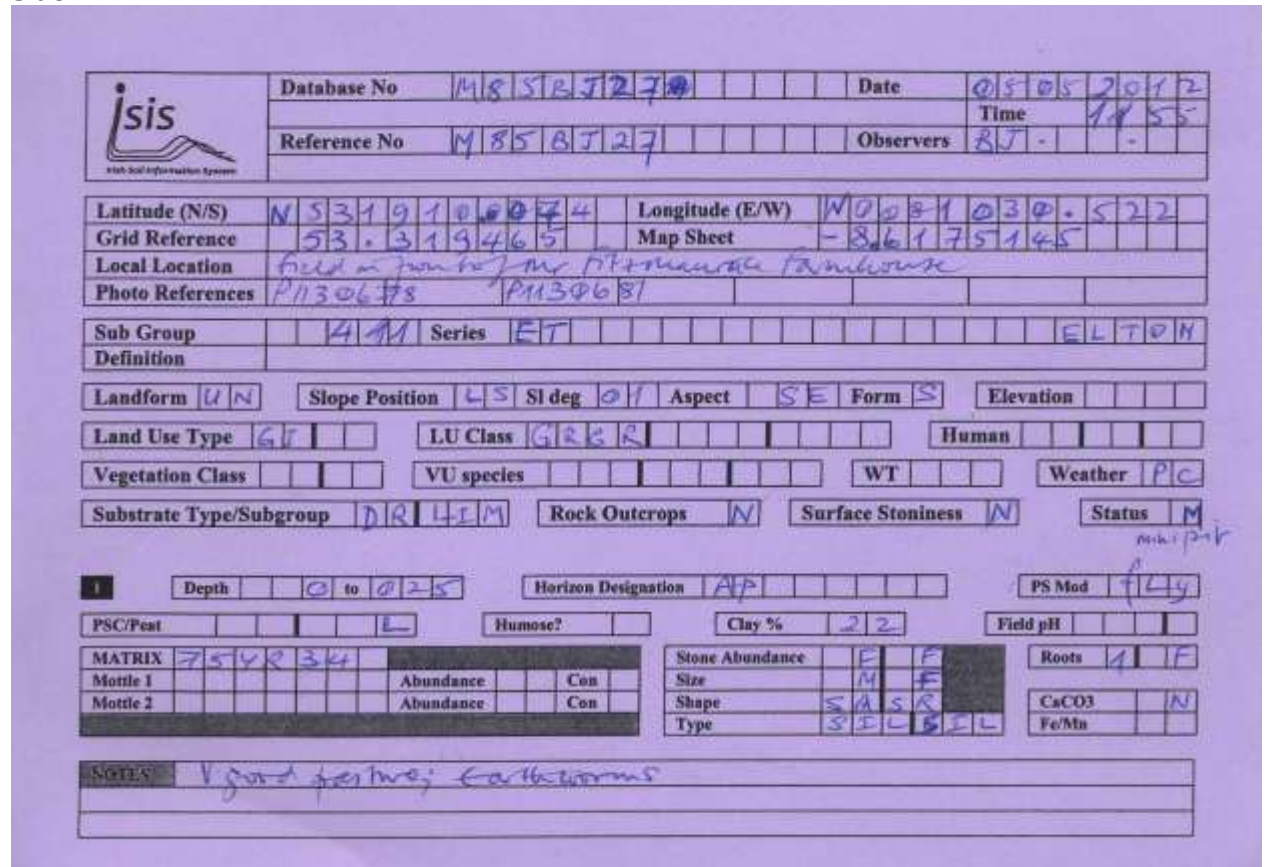 isis
Irish Soil Information System
Database No M85BJ27 Date 05052012
Time 1155
Reference No M85BJ27 Observers BJ - -
Latitude (N/S) N Longitude (E/W) W0081030.522
Grid Reference 53.319465 Map Sheet -8.6175145
Local Location field in front of Mr Fitzmaurice farmhouse
Photo References P1130678 P1130681
Sub Group 411 Series ET ELTON
Definition
Landform UN Slope Position LS Sl deg 01 Aspect SE Form S Elevation
Land Use Type GI LU Class GRGR Human
Vegetation Class VU species WT Weather PC
Substrate Type/Subgroup DRLIM Rock Outcrops N Surface Stoniness N Status M
mini pit
1 Depth 0 to 025 Horizon Designation AP PS Mod fLy
PSC/Peat L Humose? Clay % 22 Field pH
MATRIX 75YR34 Stone Abundance F F Roots 1 F
Mottle 1 Abundance Con Size M F
Mottle 2 Abundance Con Shape SASR CaCO3 N
Type SILSIL Fe/Mn
NOTES V good pasture; Earthworms